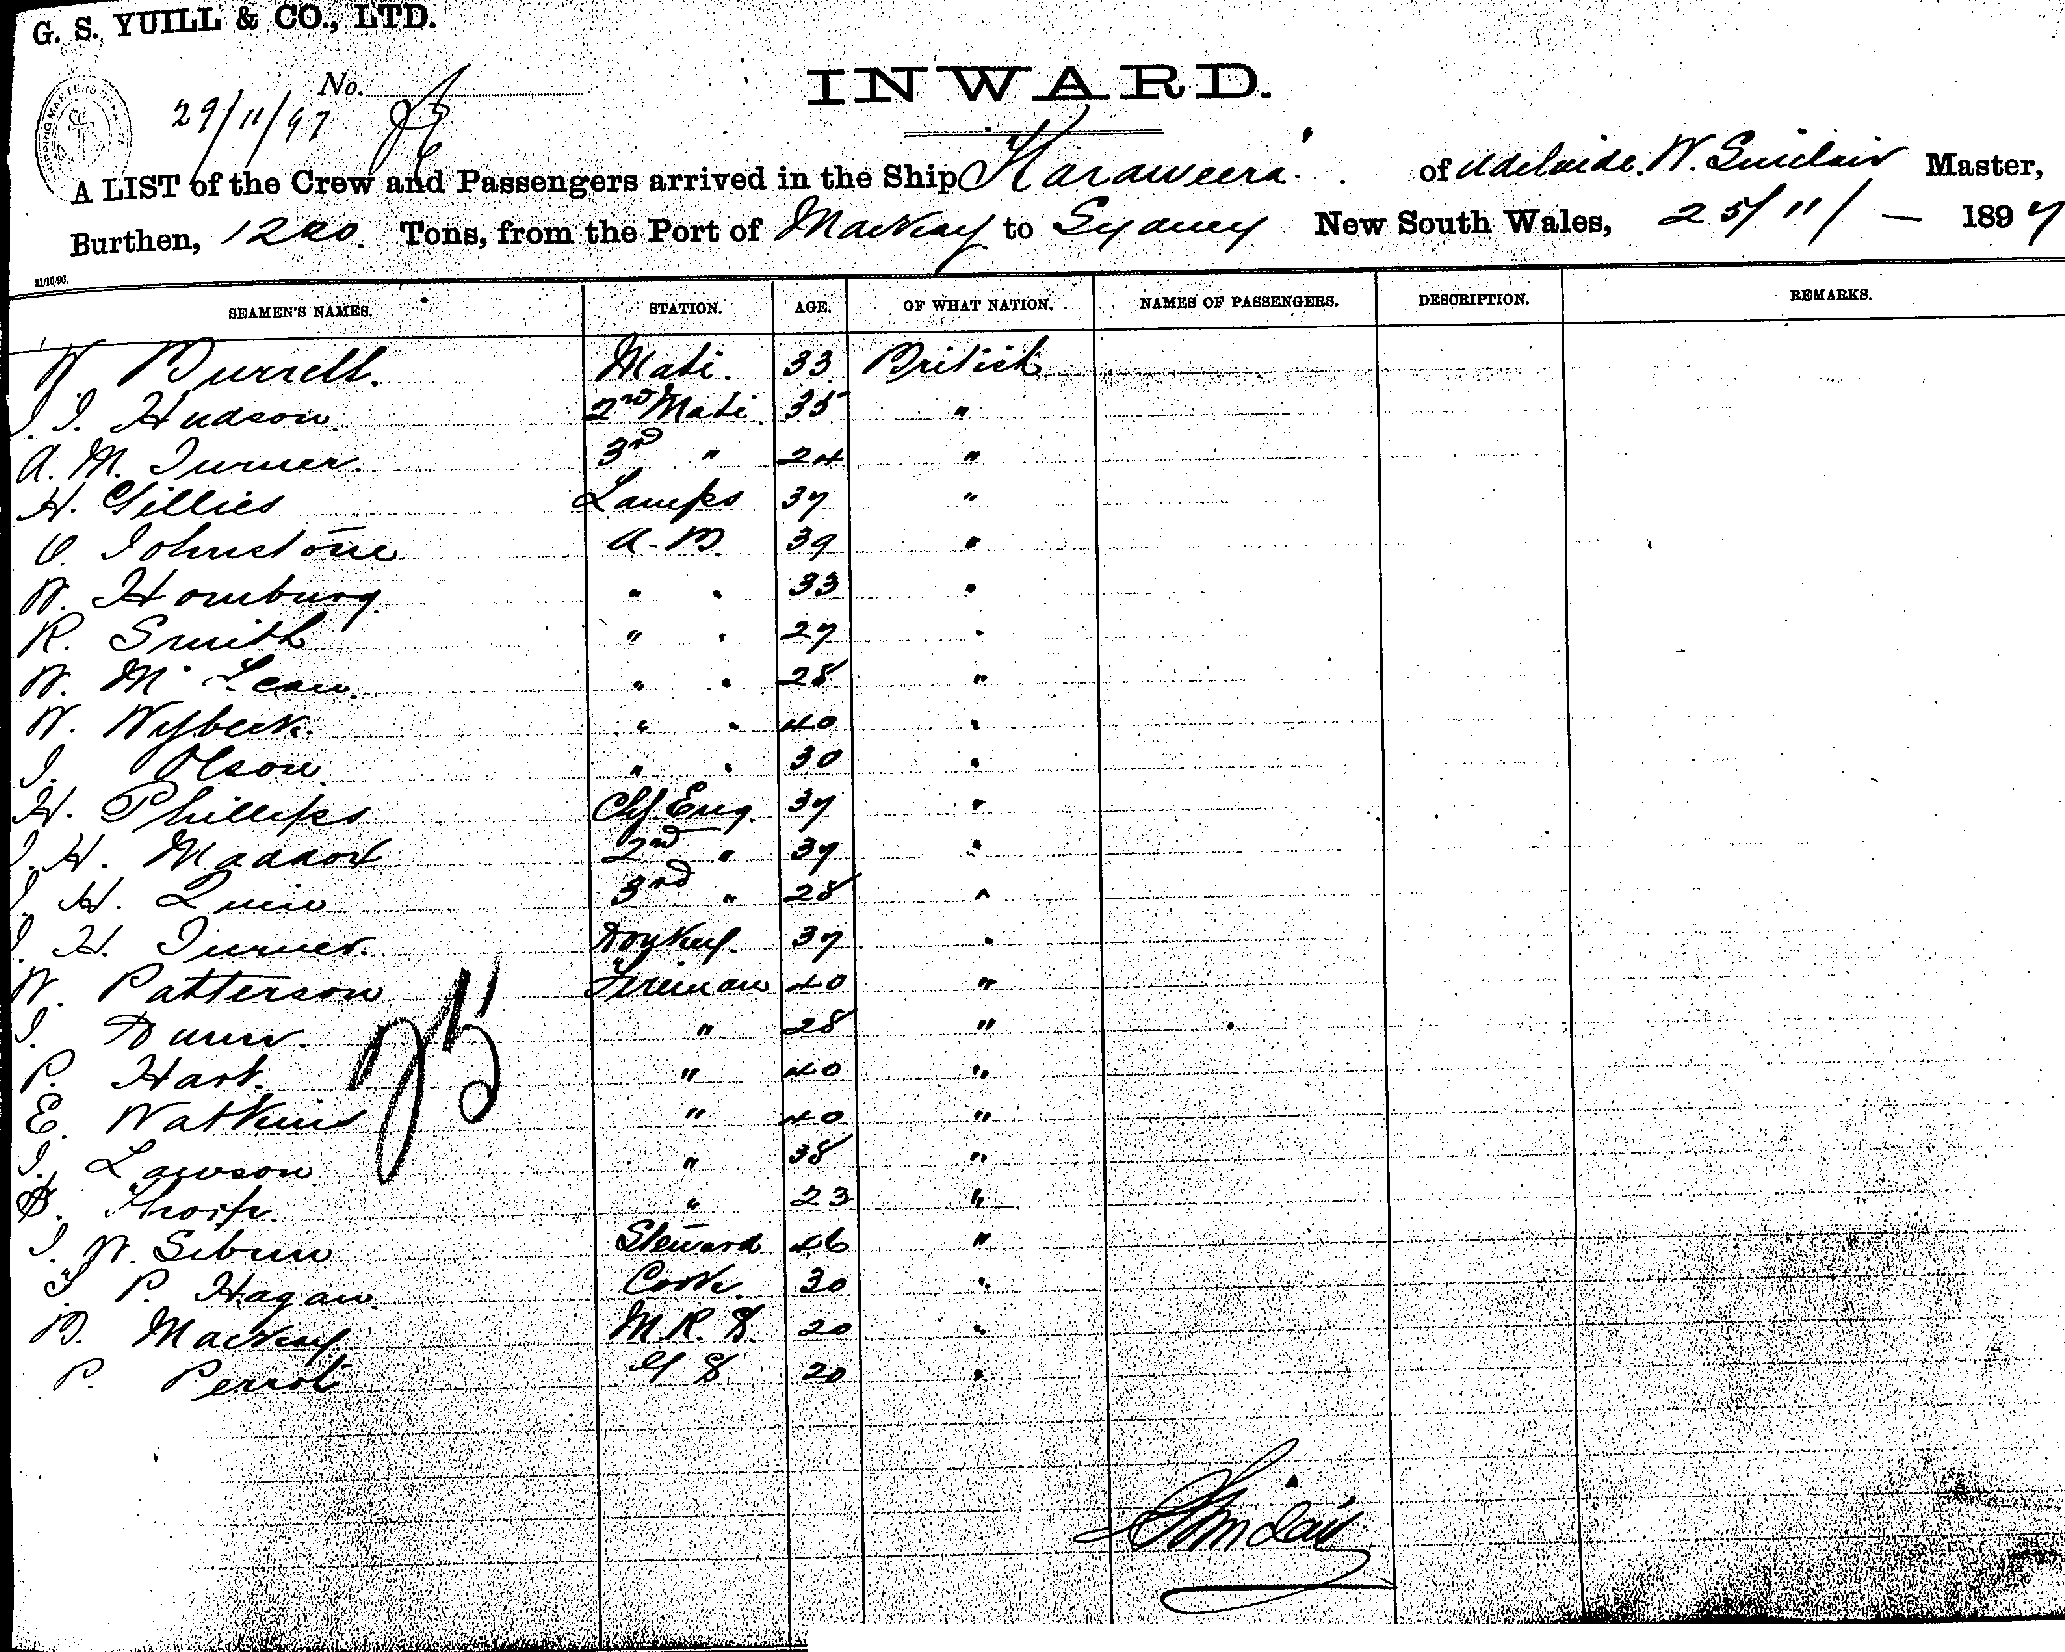 G. S. YUILL & CO., LTD.
No.
INWARD.
29/11/97
A LIST of the Crew and Passengers arrived in the Ship Karaweera of Adelaide. W. Sinclair Master,
Burthen, 1200. Tons, from the Port of Mackay to Sydney New South Wales, 25/11/ — 1897
SEAMEN'S NAMES. STATION. AGE. OF WHAT NATION. NAMES OF PASSENGERS. DESCRIPTION. REMARKS.
W Burrell. Mate. 33 British
J. J. Hudson 2nd Mate 35 "
A. M. Turner. 3rd " 24 "
H. Gillies Lamps 37 "
O. Johnstone A.B. 39 "
W. Homburg. " " 33 "
R. Smith " " 27 "
W. Mc Lean. " " 28 "
W. Wybeck. " " 40 "
J. Olson " " 30 "
H. Phillips Chf Eng. 37 "
J. H. Maddox 2nd " 37 "
J. H. Quin 3rd " 28 "
J. H. Turner. Donkey. 37 "
W. Patterson Fireman 40 "
J. Dunn. " 28 "
P. Hart. " 40 "
E. Watkins " 40 "
J. Lawson " 38 "
Thorp. " 23 "
J. W. Sibun Steward 46 "
P. Hagan. Cook. 30 "
B. Mackay M.R.S. 20 "
P. Perrot G S 20 "
25
Sinclair